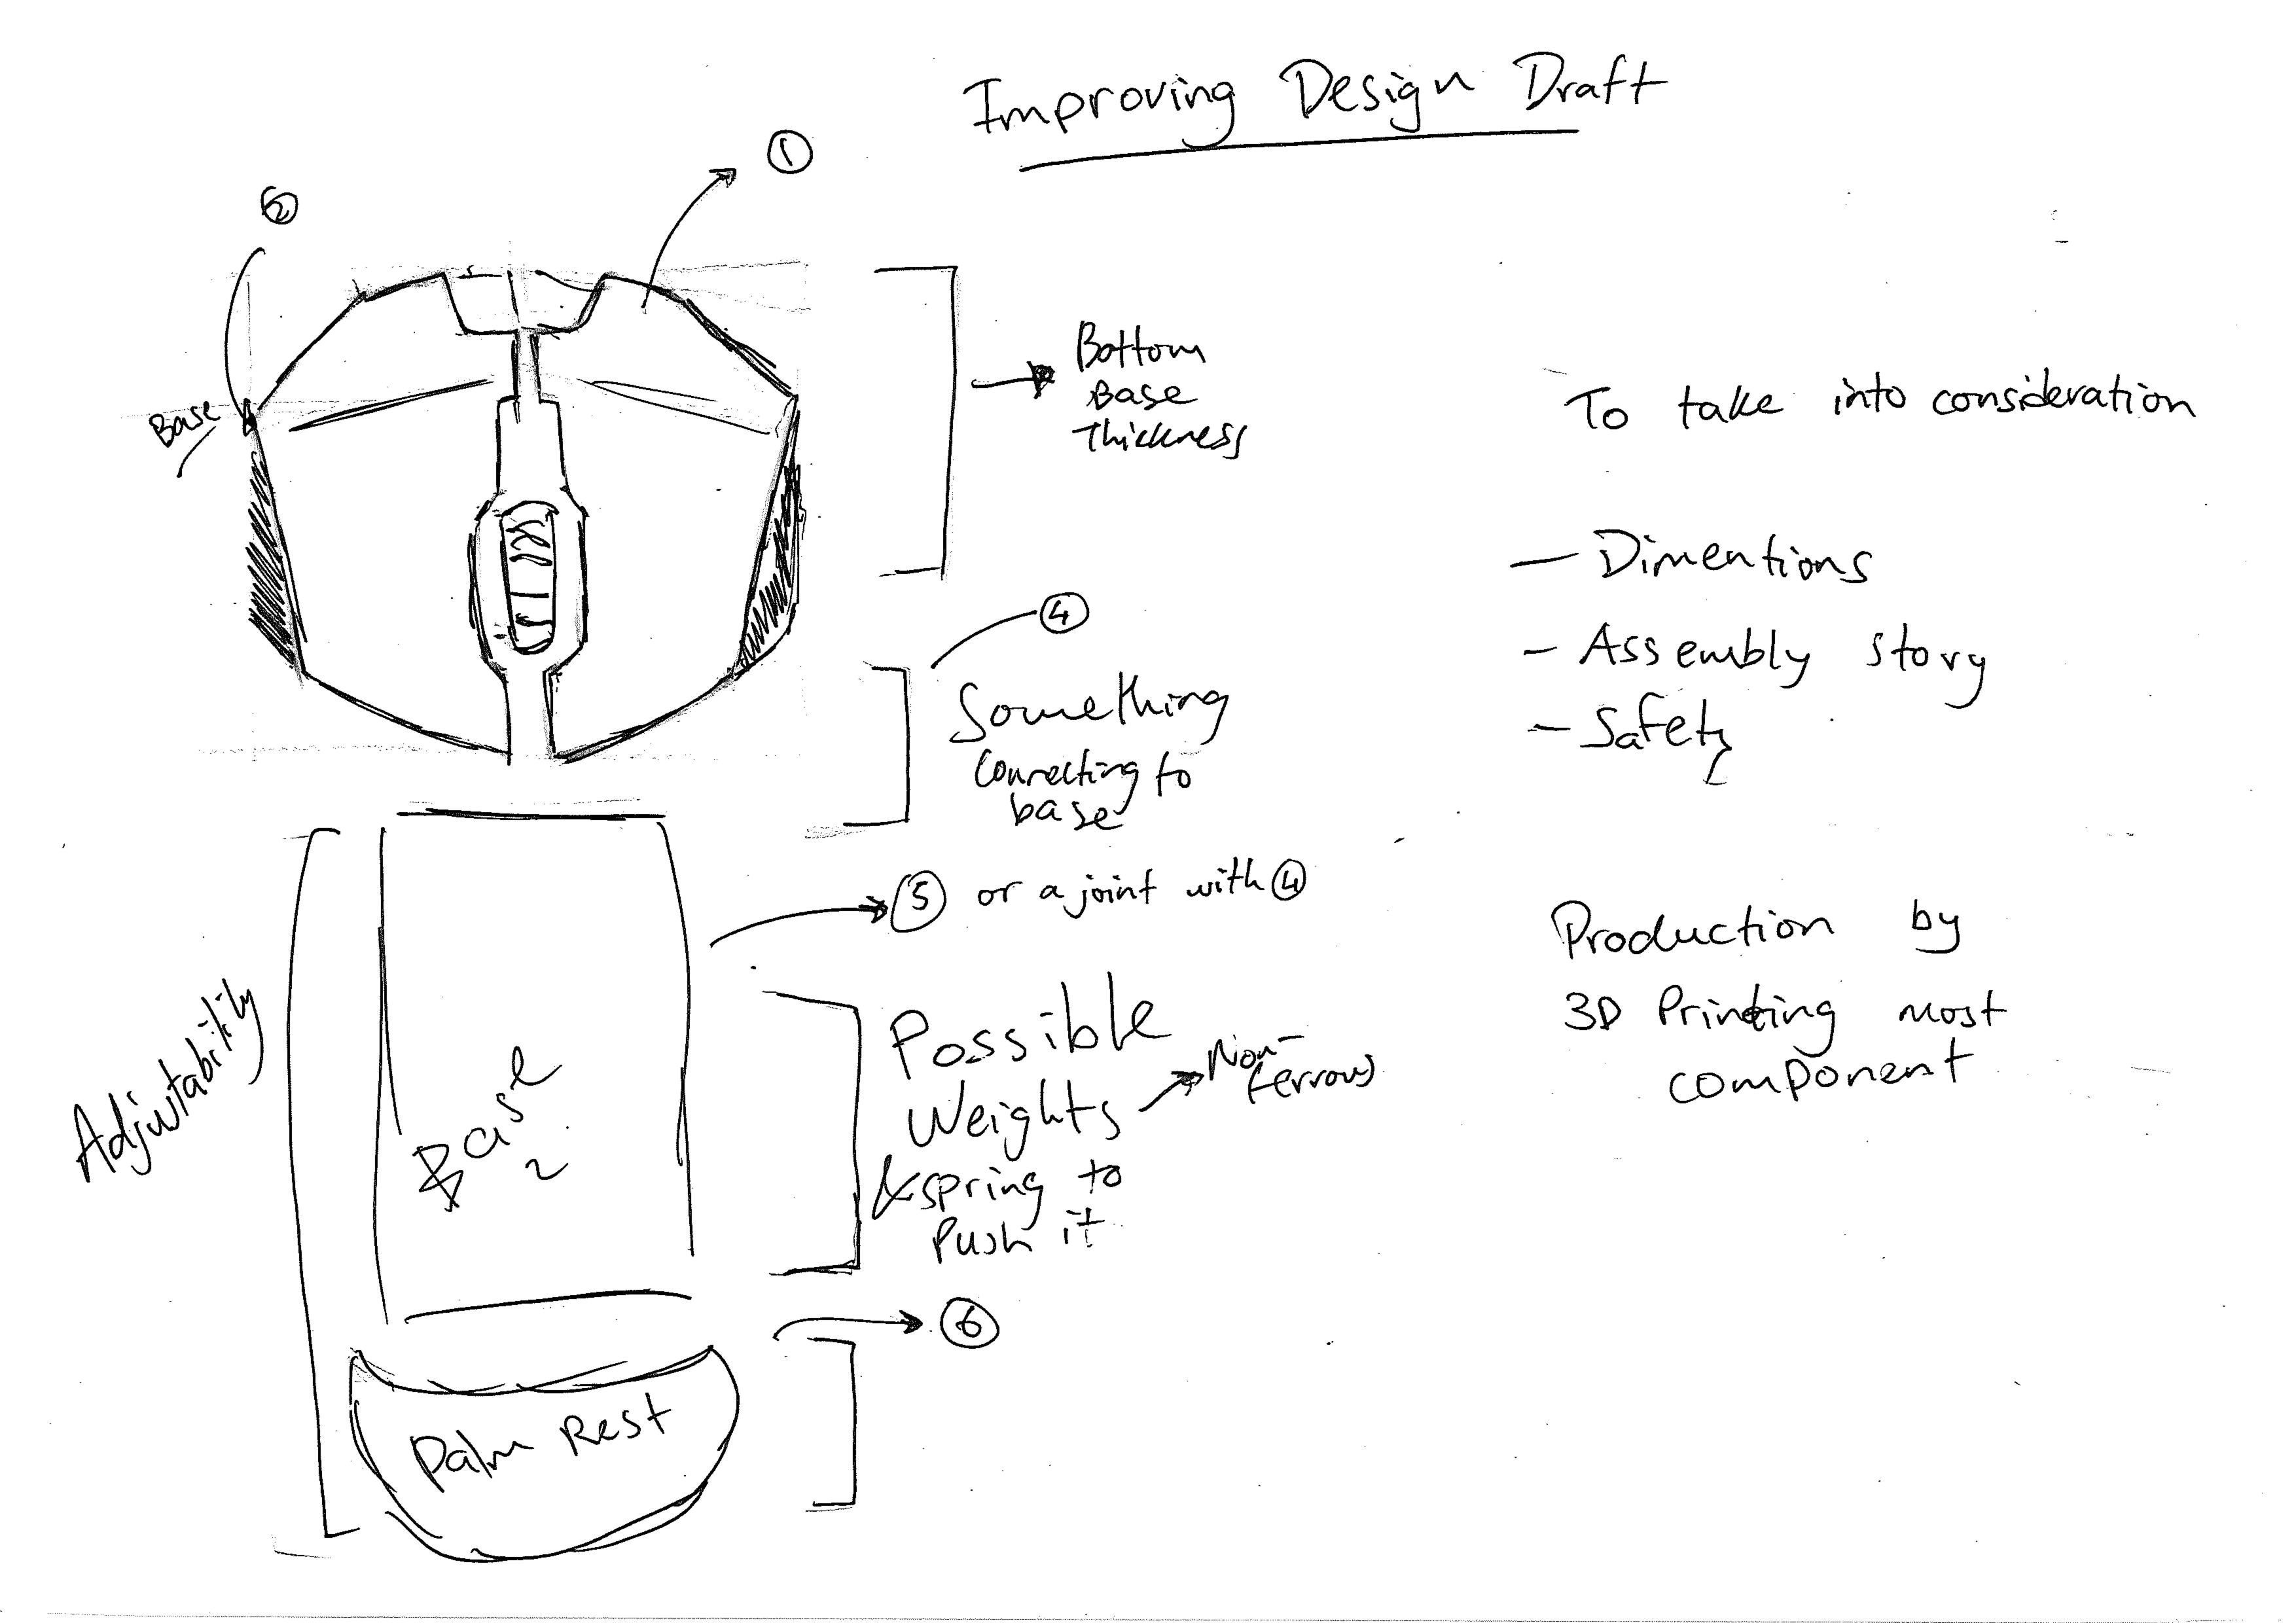 Improving Design Draft
①
②
Base
Bottom
Base
Thickness
④
Something
Connecting to
base
⑤ or a joint with ④
Adjustability
Base
2
Possible
Weights
& spring to
Push it
Non-
ferrous
⑥
Palm Rest
To take into consideration
- Dimentions
- Assembly story
- Safety
Production by
3D Printing most
component